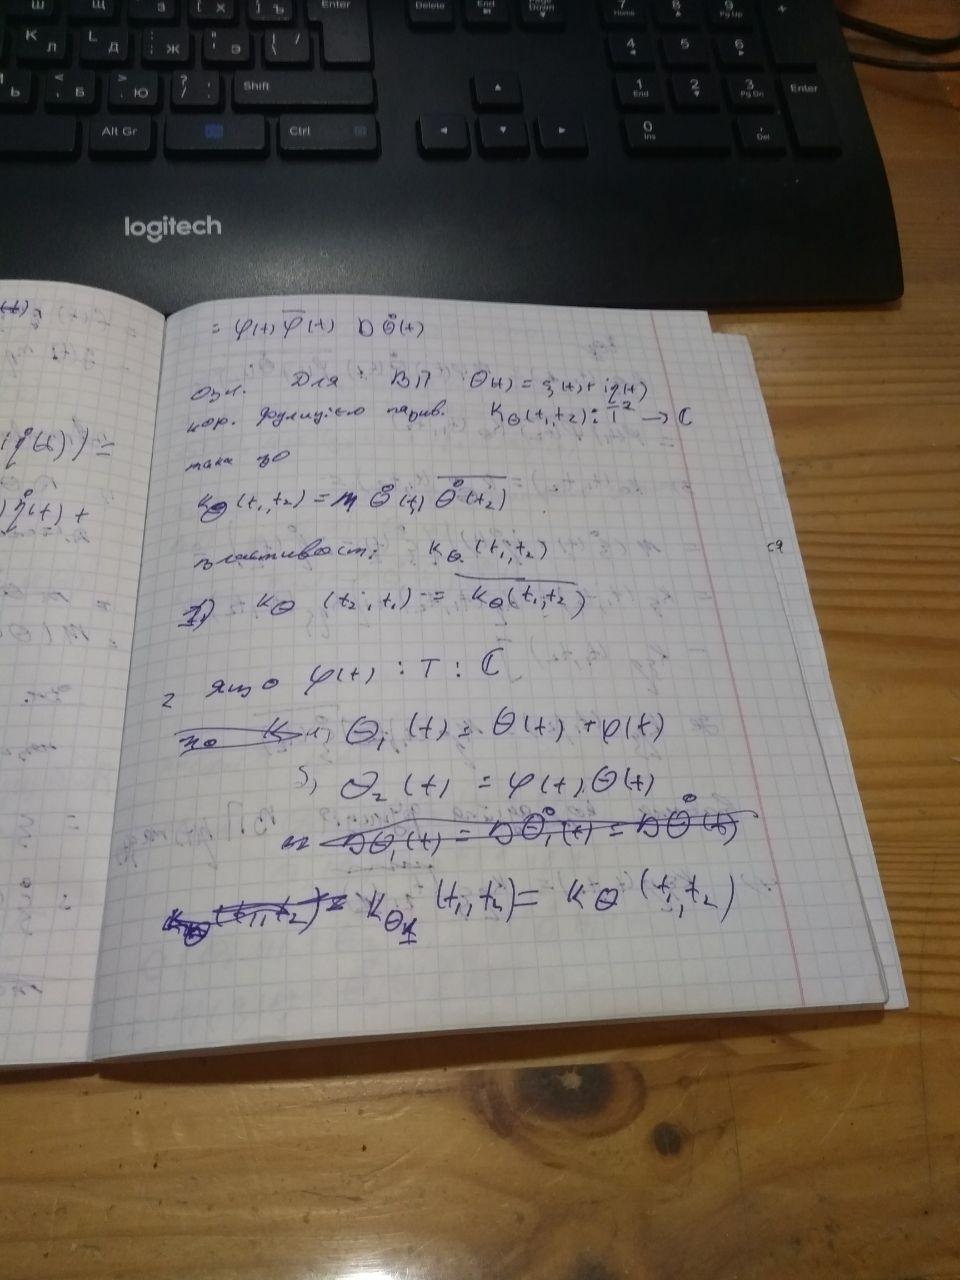 Ш
Щ
З
Х
Ъ
Enter
Delete
End
Page Down
7 Home
8
9 Pg Up
+
К Л
L Д
: ; Ж
" ' Э
| \ /
4
5
6
Ь
< , Б
> . Ю
? / .
Shift
1 End
2
3 Pg Dn
Enter
Alt Gr
Ctrl
0 Ins
, Del
logitech
= φ(t) φ̅(t) D θ̊(t)
Озн. Для ВП θ(t) = ξ(t) + iη(t)
кор. функцією назив. K_θ(t₁,t₂): T² → ℂ
така що
K_θ(t₁,t₂) = M θ̊(t₁) \overline{θ̊(t₂)}
властивості: K_θ(t₁,t₂)
1) K_θ (t₂,t₁) = \overline{K_θ(t₁,t₂)}
2 якщо φ(t) : T : ℂ
то К а) θ₁(t) = θ(t) + φ(t)
б) θ₂(t) = φ(t) θ(t)
Dθ₁(t) = Dθ̊₁(t) = Dθ̊(t)
K_θ(t₁,t₂) = K_θ₁(t₁,t₂) = K_θ(t₁,t₂)
ся